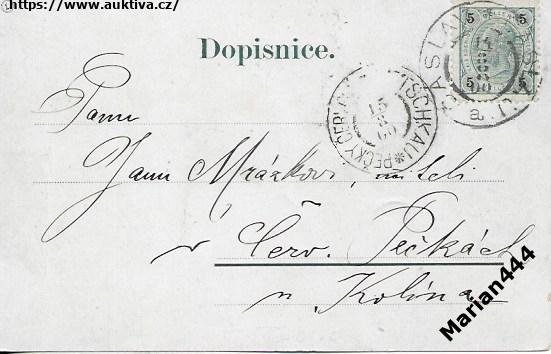 https://www.auktiva.cz/
Dopisnice.
5 5
5 5
ČÁSLAV
a
TSCHKAU * PEČKY ČERV
15
00
Panu
Janu Mrázkovi, učiteli
v Červ. Pečkách
u Kolína
Marian444